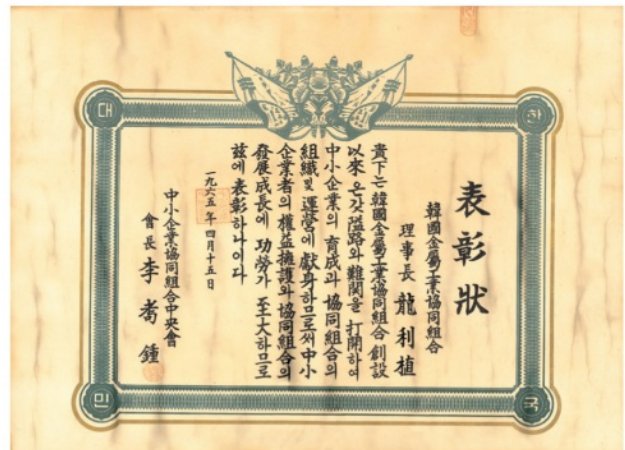 대한민국
表彰狀
韓國金屬工業協同組合
理事長 龍利植
貴下는 韓國金屬工業協同組合 創設
以來 온갖 隘路와 難関을 打開하여
中小企業의 育成과 協同組合의
組織및 運営에 獻身하므로써 中小
企業者의 權益擁護와 協同組合의
發展成長에 功勞가 至大하므로
玆에 表彰하나이다
一九六五年 四月十五日
中小企業協同組合中央會
會長 李 鍾